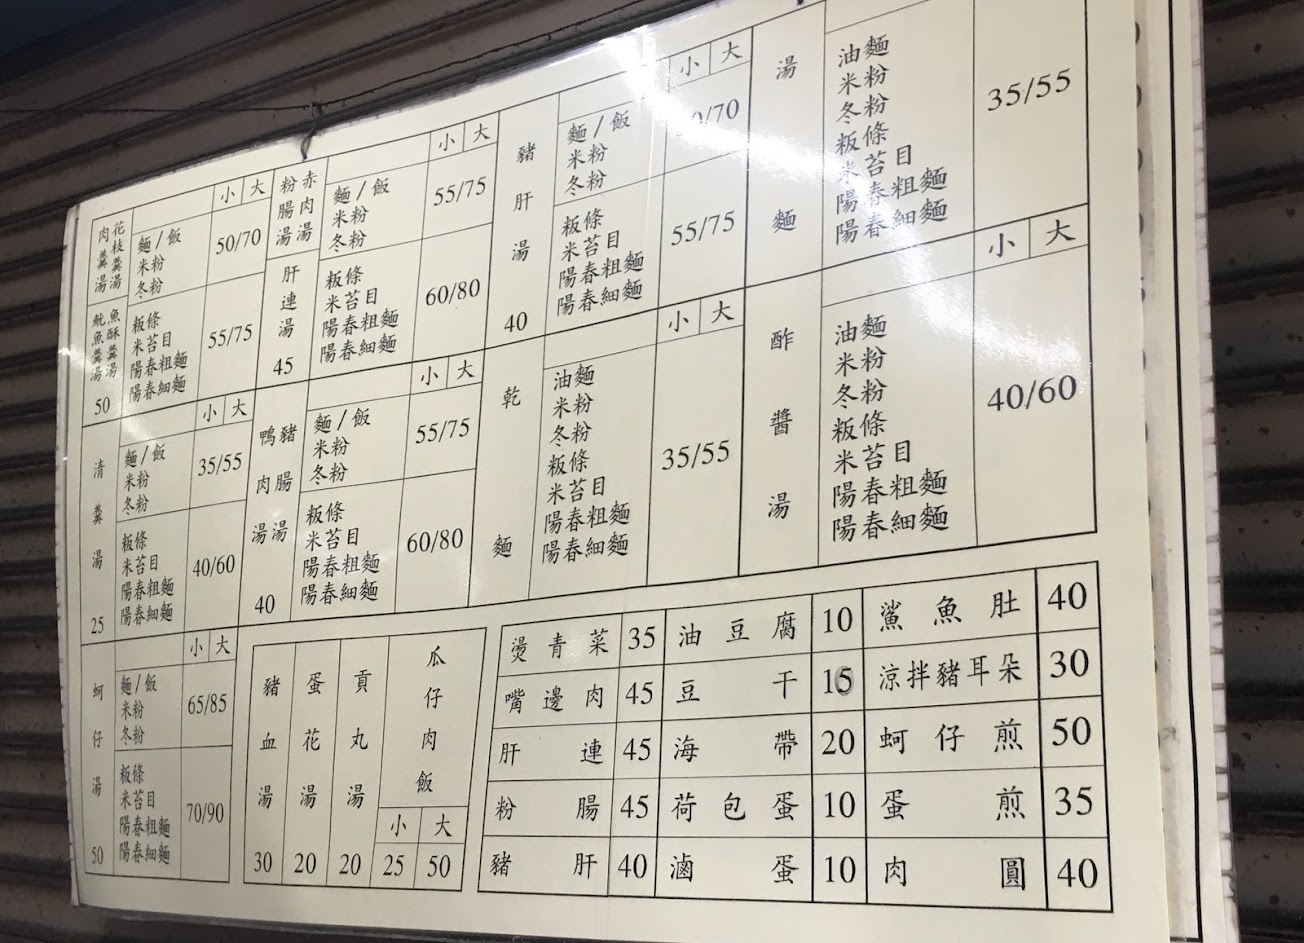 花枝羹湯
肉羹湯
魚酥羹湯
魷魚羹湯
50
小 大
麵/飯
米粉
冬粉
50/70
粄條
米苔目
陽春粗麵
陽春細麵
55/75
赤肉湯
粉腸湯
肝連湯
45
小 大
麵/飯
米粉
冬粉
55/75
粄條
米苔目
陽春粗麵
陽春細麵
60/80
豬肝湯
40
小 大
麵/飯
米粉
冬粉
/70
粄條
米苔目
陽春粗麵
陽春細麵
55/75
湯麵
油麵
米粉
冬粉
粄條
米苔目
陽春粗麵
陽春細麵
35/55
清羹湯
25
小 大
麵/飯
米粉
冬粉
35/55
粄條
米苔目
陽春粗麵
陽春細麵
40/60
豬腸湯
鴨肉湯
40
小 大
麵/飯
米粉
冬粉
55/75
粄條
米苔目
陽春粗麵
陽春細麵
60/80
乾麵
小 大
油麵
米粉
冬粉
粄條
米苔目
陽春粗麵
陽春細麵
35/55
酢醬湯
小 大
油麵
米粉
冬粉
粄條
米苔目
陽春粗麵
陽春細麵
40/60
蚵仔湯
50
小 大
麵/飯
米粉
冬粉
65/85
粄條
米苔目
陽春粗麵
陽春細麵
70/90
豬血湯 30
蛋花湯 20
貢丸湯 20
瓜仔肉飯
小 大
25 50
燙青菜 35 油豆腐 10 鯊魚肚 40
嘴邊肉 45 豆干 15 涼拌豬耳朵 30
肝連 45 海帶 20 蚵仔煎 50
粉腸 45 荷包蛋 10 蛋煎 35
豬肝 40 滷蛋 10 肉圓 40